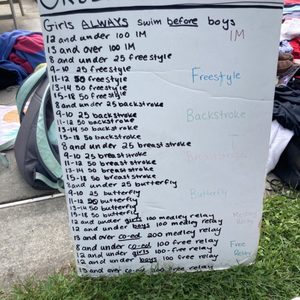 Girls ALWAYS swim before boys
12 and under 100 IM
13 and over 100 IM
IM
8 and under 25 freestyle
9-10 25 freestyle
11-12 50 freestyle
13-14 50 freestyle
15-18 50 freestyle
Freestyle
8 and under 25 backstroke
9-10 25 backstroke
11-12 50 backstroke
13-14 50 backstroke
15-18 50 backstroke
Backstroke
8 and under 25 breaststroke
9-10 25 breaststroke
11-12 50 breaststroke
13-14 50 breaststroke
15-18 50 breaststroke
8 and under 25 butterfly
9-10 25 butterfly
11-12 50 butterfly
13-14 50 butterfly
15-18 50 butterfly
Butterfly
12 and under girls 100 medley relay
12 and under boys 100 medley relay
13 and over co-ed 200 medley relay
8 and under co-ed 100 free relay
12 and under girls 100 free relay
12 and under boys 100 free relay
13 and over co-ed free relay
Free
Relay